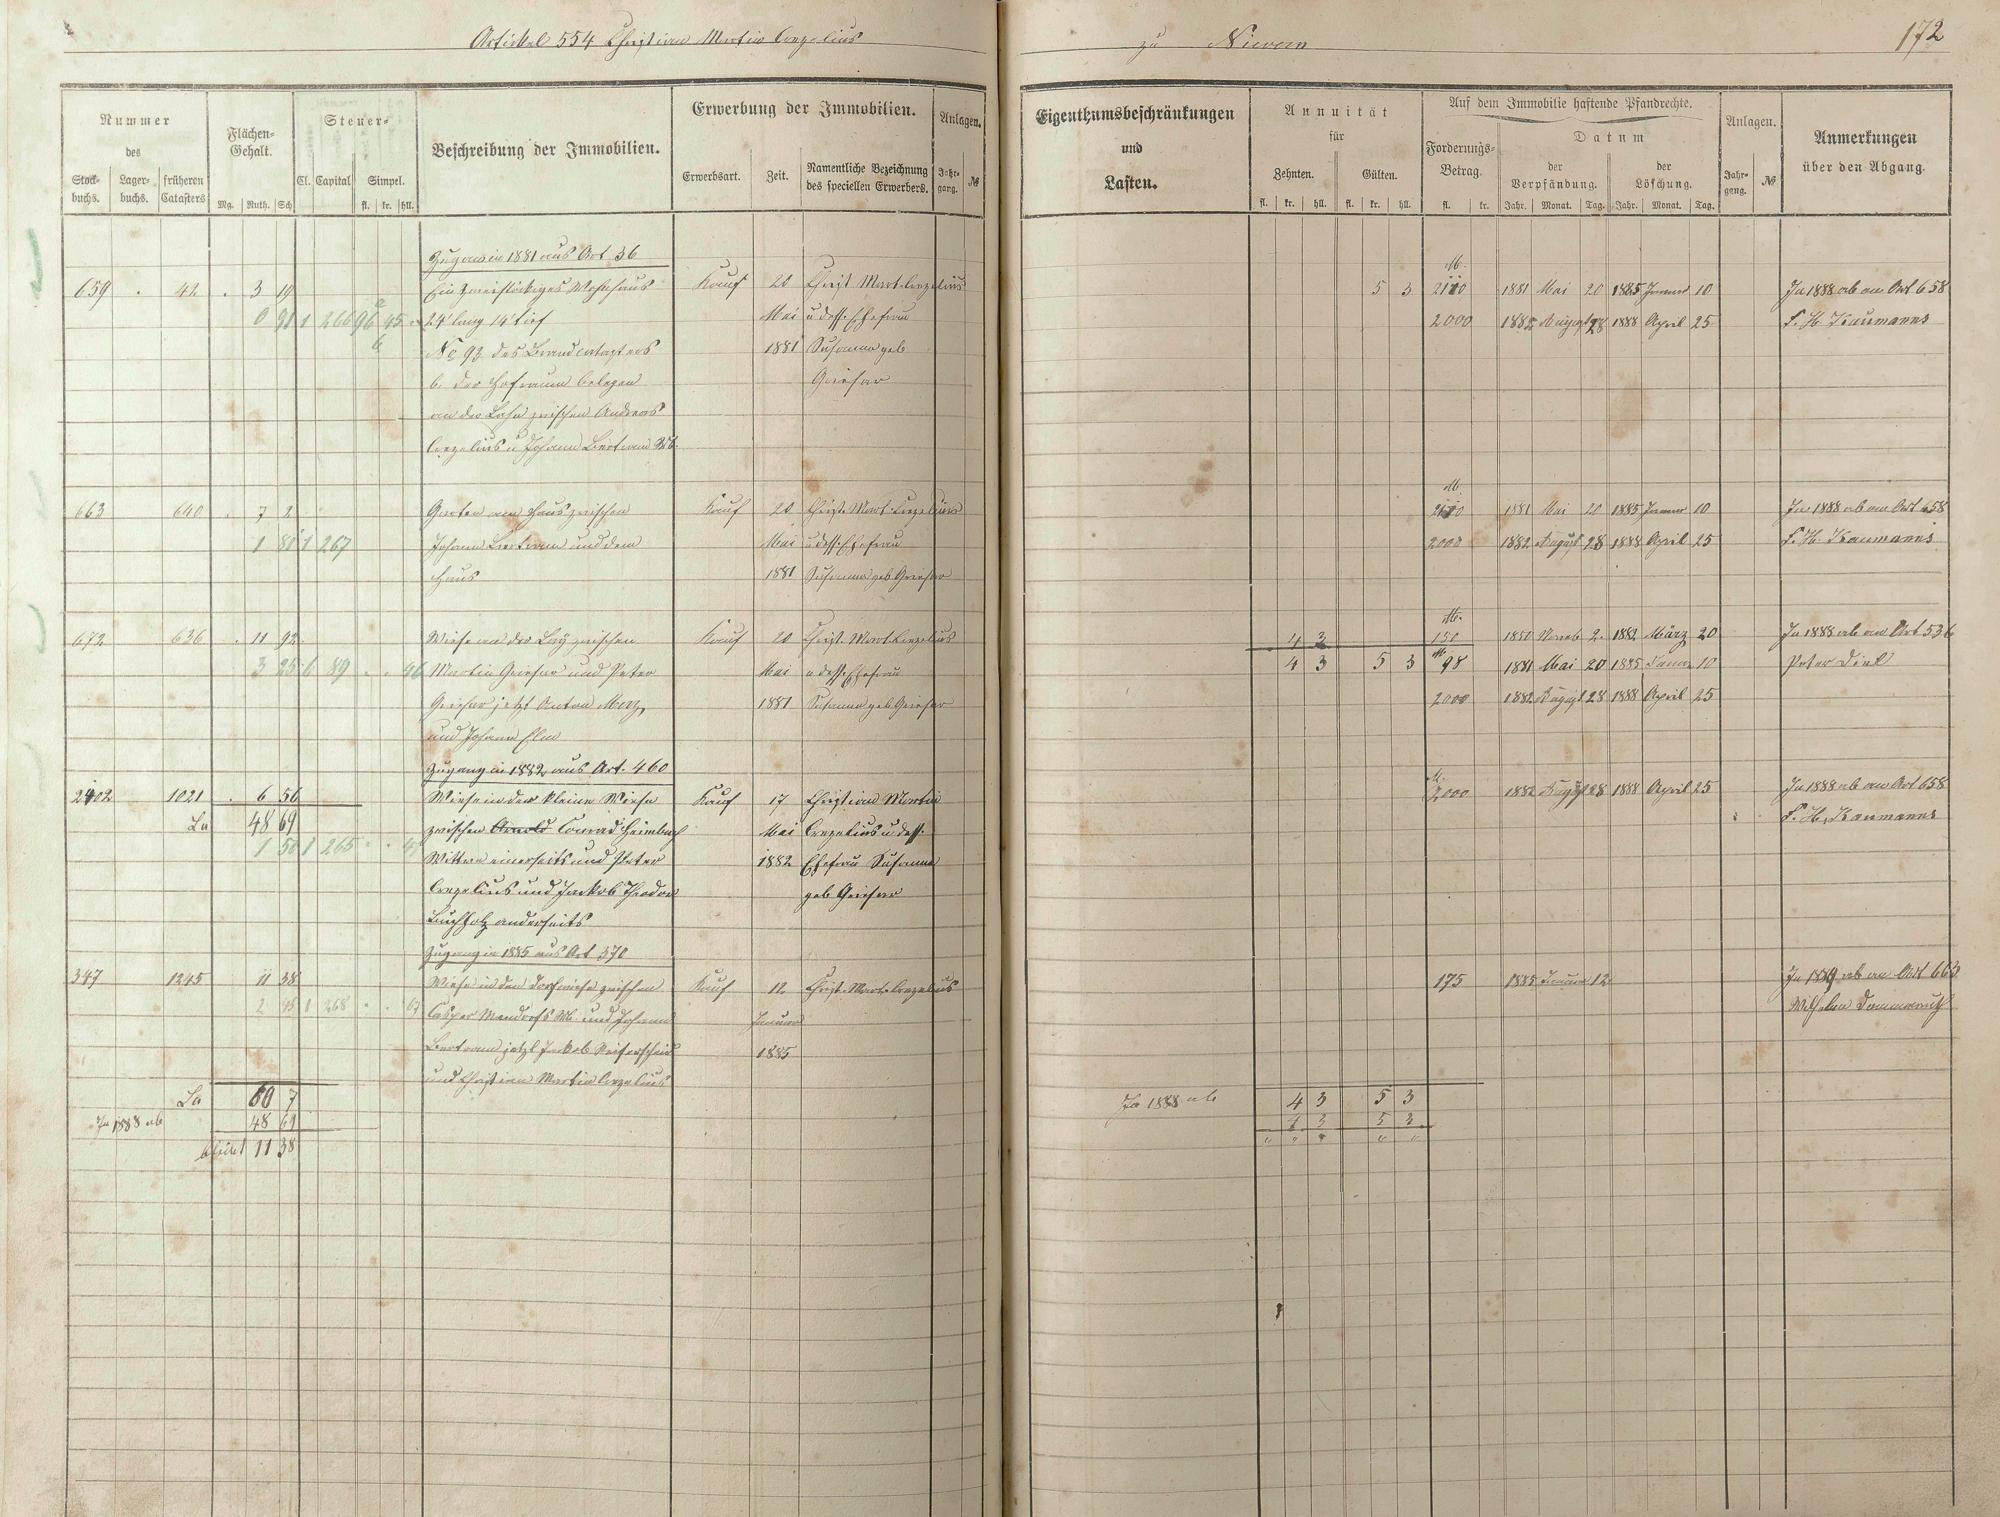 Artickel 554 Christian Martin Crezelius
zu Nievern
172
Nummer
des
Stock-
buchs.
Lager-
buchs.
früheren
Catasters
Flächen-
Gehalt.
Mg. Ruth. Sch
Steuer-
Cl. Capital Simpel.
fl. kr. hll.
Beschreibung der Immobilien.
Erwerbung der Immobilien.
Erwerbsart. Zeit.
Namentliche Bezeichnung
des speciellen Erwerbers.
Anlagen.
Jahr-
gang.
№
Eigenthumsbeschränkungen
und
Lasten.
Annuität
für
Zehnten. Gülten.
fl. kr. hll. fl. kr. hll.
Auf dem Immobilie haftende Pfandrechte.
Forderungs-
Betrag.
fl. kr.
Datum
der
Verpfändung.
Jahr. Monat. Tag.
der
Löschung.
Jahr. Monat. Tag.
Anlagen.
Jahr-
gang.
№
Anmerkungen
über den Abgang.
Zugang in 1881 aus Art 36
659 42 3 19 Ein zweistöckiges Wohnhaus Kauf 20 Christ Mart. Crezelius 5 3 1881 Mai 20 1885 Januar 10 In 1888 ab an Art 658
0 91 1 266 96 45 24' lang 14' tief Mai u dess. Ehefrau 2000 1882 August 28 1888 April 25
No 92 des Brandcatasters 1881 Susanna geb
b. der Hofraum belegen Griesar
an der Lahn zwischen Andreas
Crezelius u Johann Bertram Wb.
663 640 7 2 Garten am Haus zwischen Kauf 20 Christ. Mart. Crezelius 1881 Mai 20 1885 Januar 10 In 1888 ab an Art 658
1 267 Johann Bertram und dem Mai u dess. Ehefrau 2000 1882 August 28 1888 April 25
Haus 1881 Susanna geb Griesar
672 636 11 92 Wiese an der Lay zwischen Kauf 20 Christ. Mart. Crezelius 4 3 150 2. 1882 März 20 In 1888 ab an Art 536
3 25 6 89 96 Martin Griesar und Peter Mai u dess. Ehefrau 4 3 5 3 98 1881 Mai 20 1885 Januar 10 Peter Diel
Griesar jetzt Anton Merz, 1881 Susanna geb Griesar 2000 1882 August 28 1888 April 25
und Johann Elm
Zugang in 1882 aus Art. 460
2402 1021 6 56 Wiese in der kleine Wiese Kauf 17 Christian Martin 2000 1882 August 28 1888 April 25 In 1888 ab an Art 658
La 48 69 zwischen Arnold Conrad Heimbach Mai Crezelius u dess.
1 50 1 265 Wittwe einerseits und Peter 1882 Ehefrau Susanna
Crezelius und Jackob Theodor geb Griesar
Buchholz anderseits
Zugang in 1885 aus Art 370
347 1245 11 38 Wiese in den Dorfwiese zwischen Kauf 12 Christ. Mart. Crezelius 175 1885 Januar 12 In 1889 ab an Art 663
1 268 Casper Mandorfs Wb. und Johann Januar Wilhelm
Bertram jetzt Jackob Reiferscheid 1885
und Christian Martin Crezelius
La 60 7 In 1888 ab 4 3 5 3
In 1888 ab 48 69 4 3 5 3
bleibt 11 38